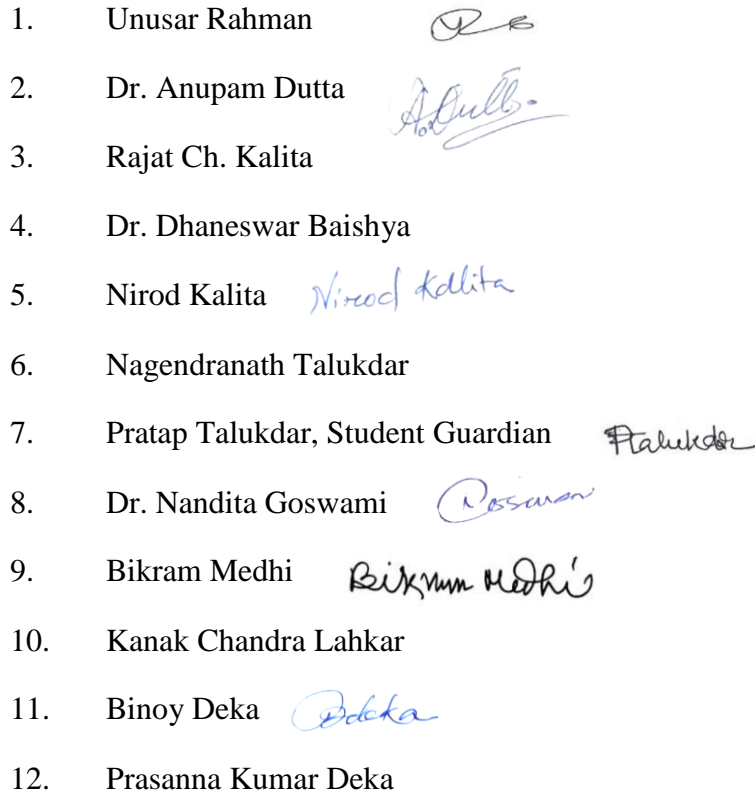 1. Unusar Rahman
2. Dr. Anupam Dutta A.Dutta.
3. Rajat Ch. Kalita
4. Dr. Dhaneswar Baishya
5. Nirod Kalita Nirod Kalita
6. Nagendranath Talukdar
7. Pratap Talukdar, Student Guardian PTalukdar
8. Dr. Nandita Goswami
9. Bikram Medhi Bikram Medhi
10. Kanak Chandra Lahkar
11. Binoy Deka BDeka
12. Prasanna Kumar Deka